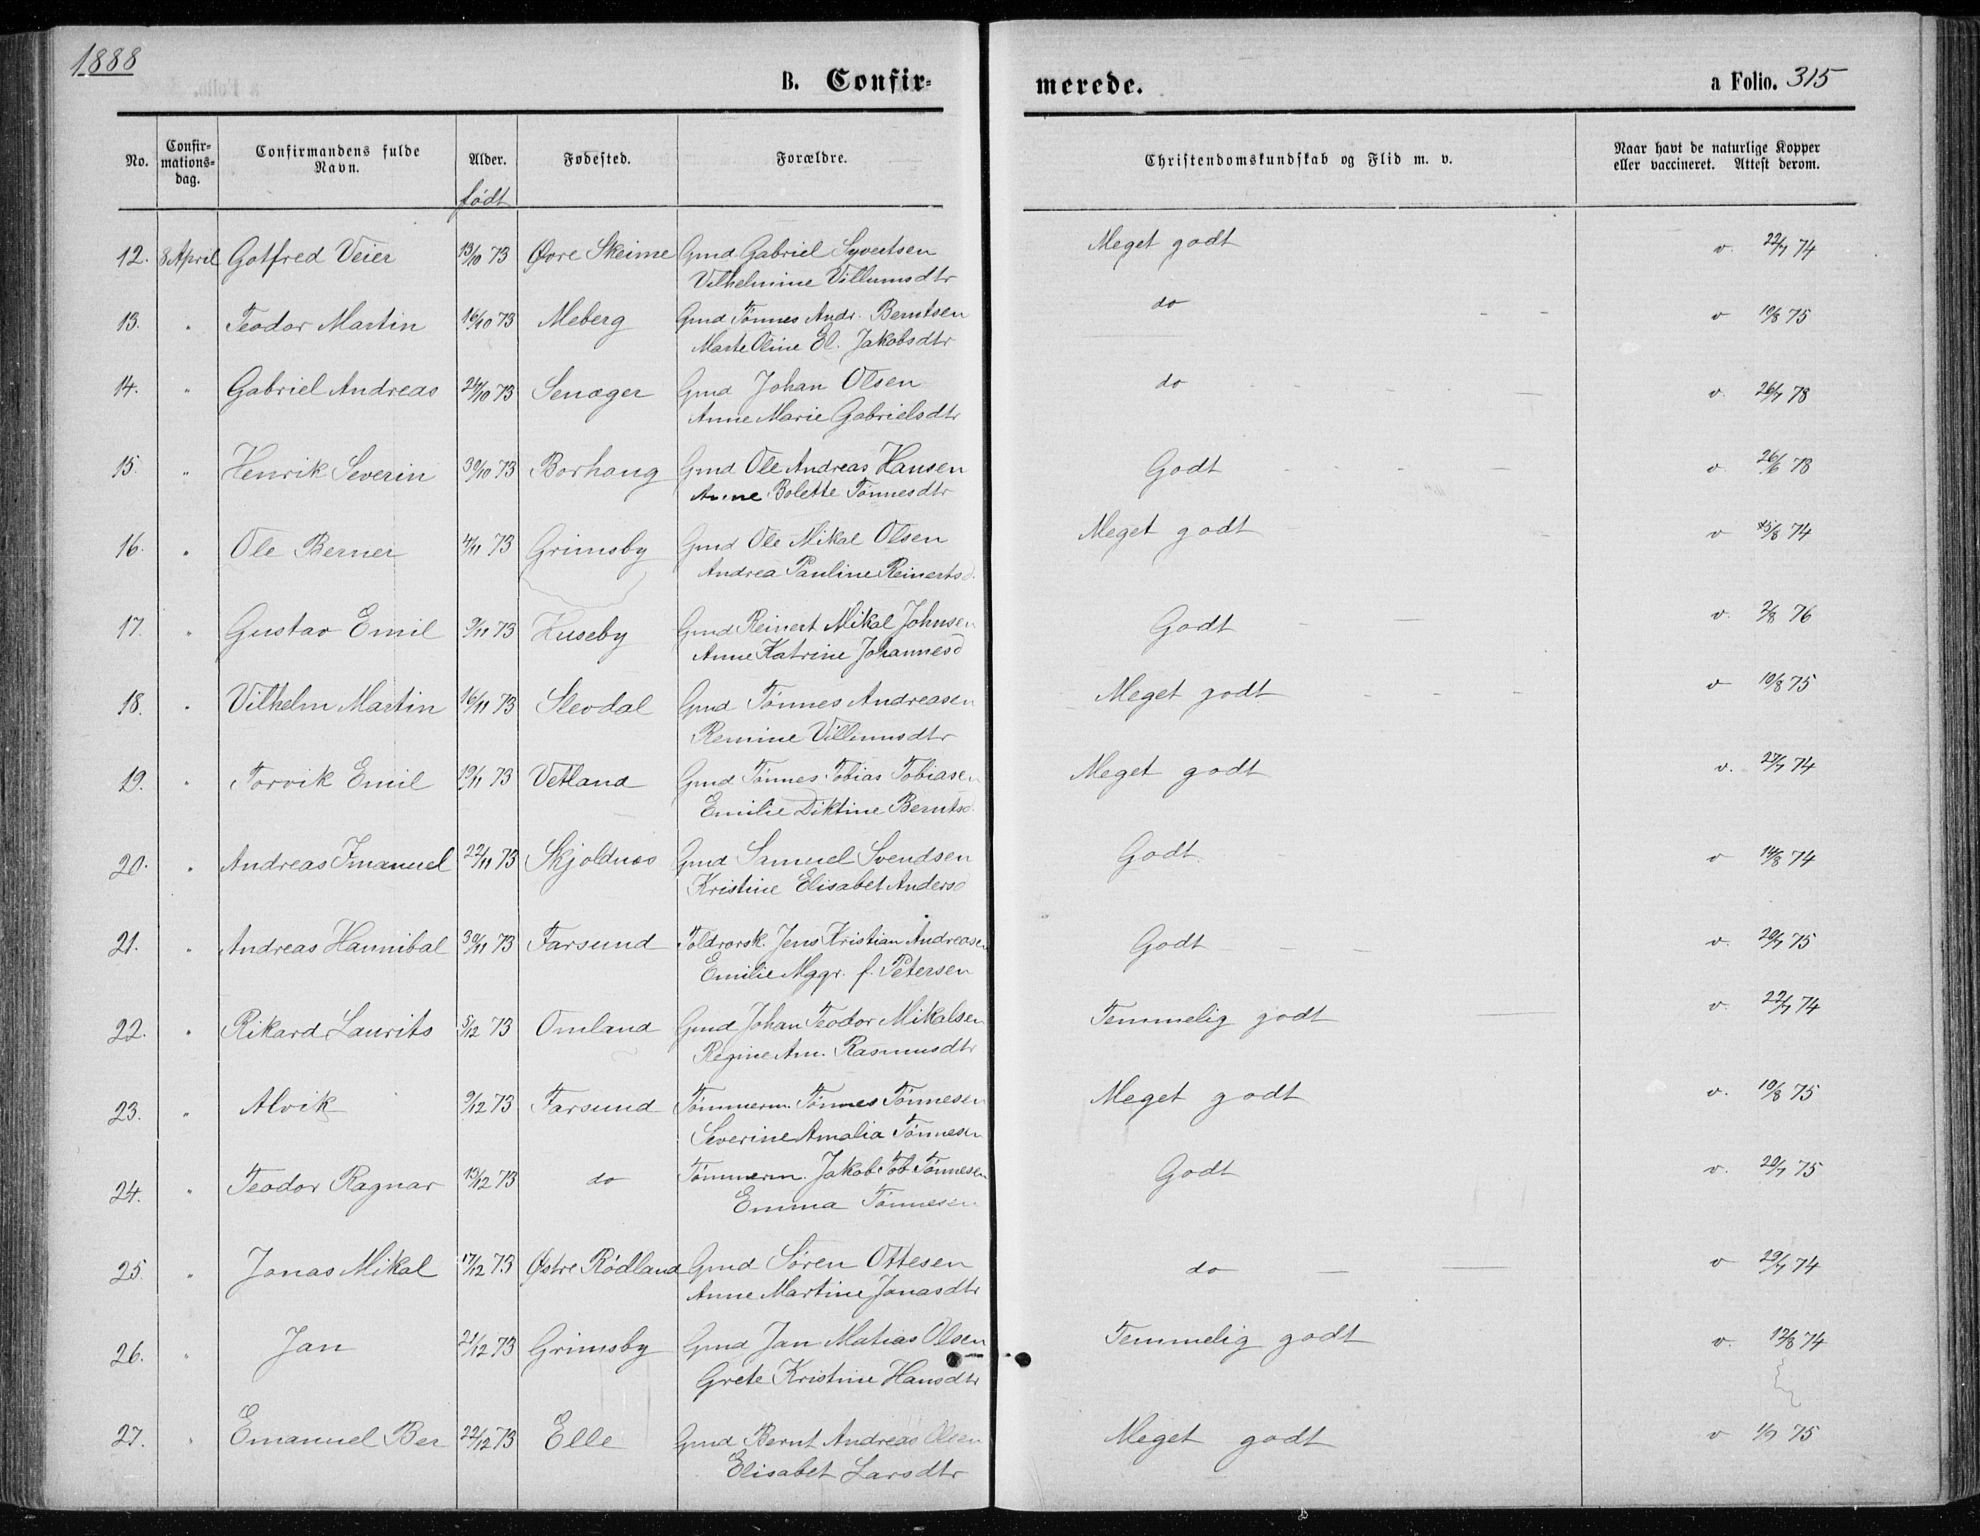 1888
B. Confir-
merede.
a Folio. 315
No.
Confir-
mations-
dag.
Confirmandens fulde
Navn.
Alder.
født
Fødested.
Forældre.
Christendomskundskab og Flid m. v.
Naar havt de naturlige Kopper
eller vaccineret. Attest derom.
12. 8 April Gotfred Veier 13/10 73 Øvre Skeime Gmd Gabriel Syvertsen Meget godt v. 22/7 74
Vilhelmine Villumsdtr
13. " Teodor Martin 16/10 73 Meberg Gmd Tønnes Andr. Berntsen do v 10/8 75
Marte Oline El. Jakobsdtr
14. " Gabriel Andreas 24/10 73 Senæger Gmd Johan Olsen do v. 26/7 78
Anne Marie Gabrielsdtr
15. " Henrik Severin 30/10 73 Borhaug Gmd Ole Andreas Hansen Godt v. 26/6 78
Anne Bolette Tønnesdtr
16. " Ole Berner 4/11 73 Grimsby Gmd Ole Mikal Olsen Meget godt v 15/8 74
Andrea Pauline Reinertsd.
17. " Gustav Emil 9/11 73 Huseby Gmd Reinert Mikal Johnsen Godt v. 2/8 76
Anne Katrine Johannesd
18. " Vilhelm Martin 16/11 73 Slevdal Gmd Tønnes Andreasen Meget godt v 10/8 75
Remine Villumsdtr
19. " Torvik Emil 19/11 73 Vetland Gmd Tønnes Tobias Tobiasen Meget godt v. 27/7 74
Emilie Diktine Berntsd.
20. " Andreas Imanuel 22/11 73 Skjoldnes Gmd Samuel Svendsen Godt. v 14/8 74
Kristine Elisabet Andersd
21. " Andreas Hannibal 30/11 73 Farsund Toldrorsk. Jens Kristian Andreasen Godt v. 20/7 75
Emilie Mggr. f. Petersen
22. " Rikard Laurits 5/12 73 Omland Gmd Johan Teodor Mikalsen Temmelig godt v. 22/7 74
Regine Am. Rasmusdtr
23. " Alvik 9/12 73 Farsund Tømmerm. Tønnes Tønnesen Meget godt v. 10/8 75
Severine Amalia Tønnesen
24. " Teodor Ragnar 13/12 73 do Tømmerm. Jakob Tob Tønnesen Godt v. 20/7 75
Emma Tønnesen
25. " Jonas Mikal 17/12 73 Østre Rødland Gmd Søren Ottesen do v 29/7 74
Anne Martine Jonasdtr
26. " Jan 21/12 73 Grimsby Gmd Jan Matias Olsen Temmelig godt v. 12/8 74
Grete Kristine Hansdtr
27. " Emanuel Ber 22/12 73 Elle Gmd Bernt Andreas Olsen Meget godt v 1/9 75
Elisabet Larsdtr